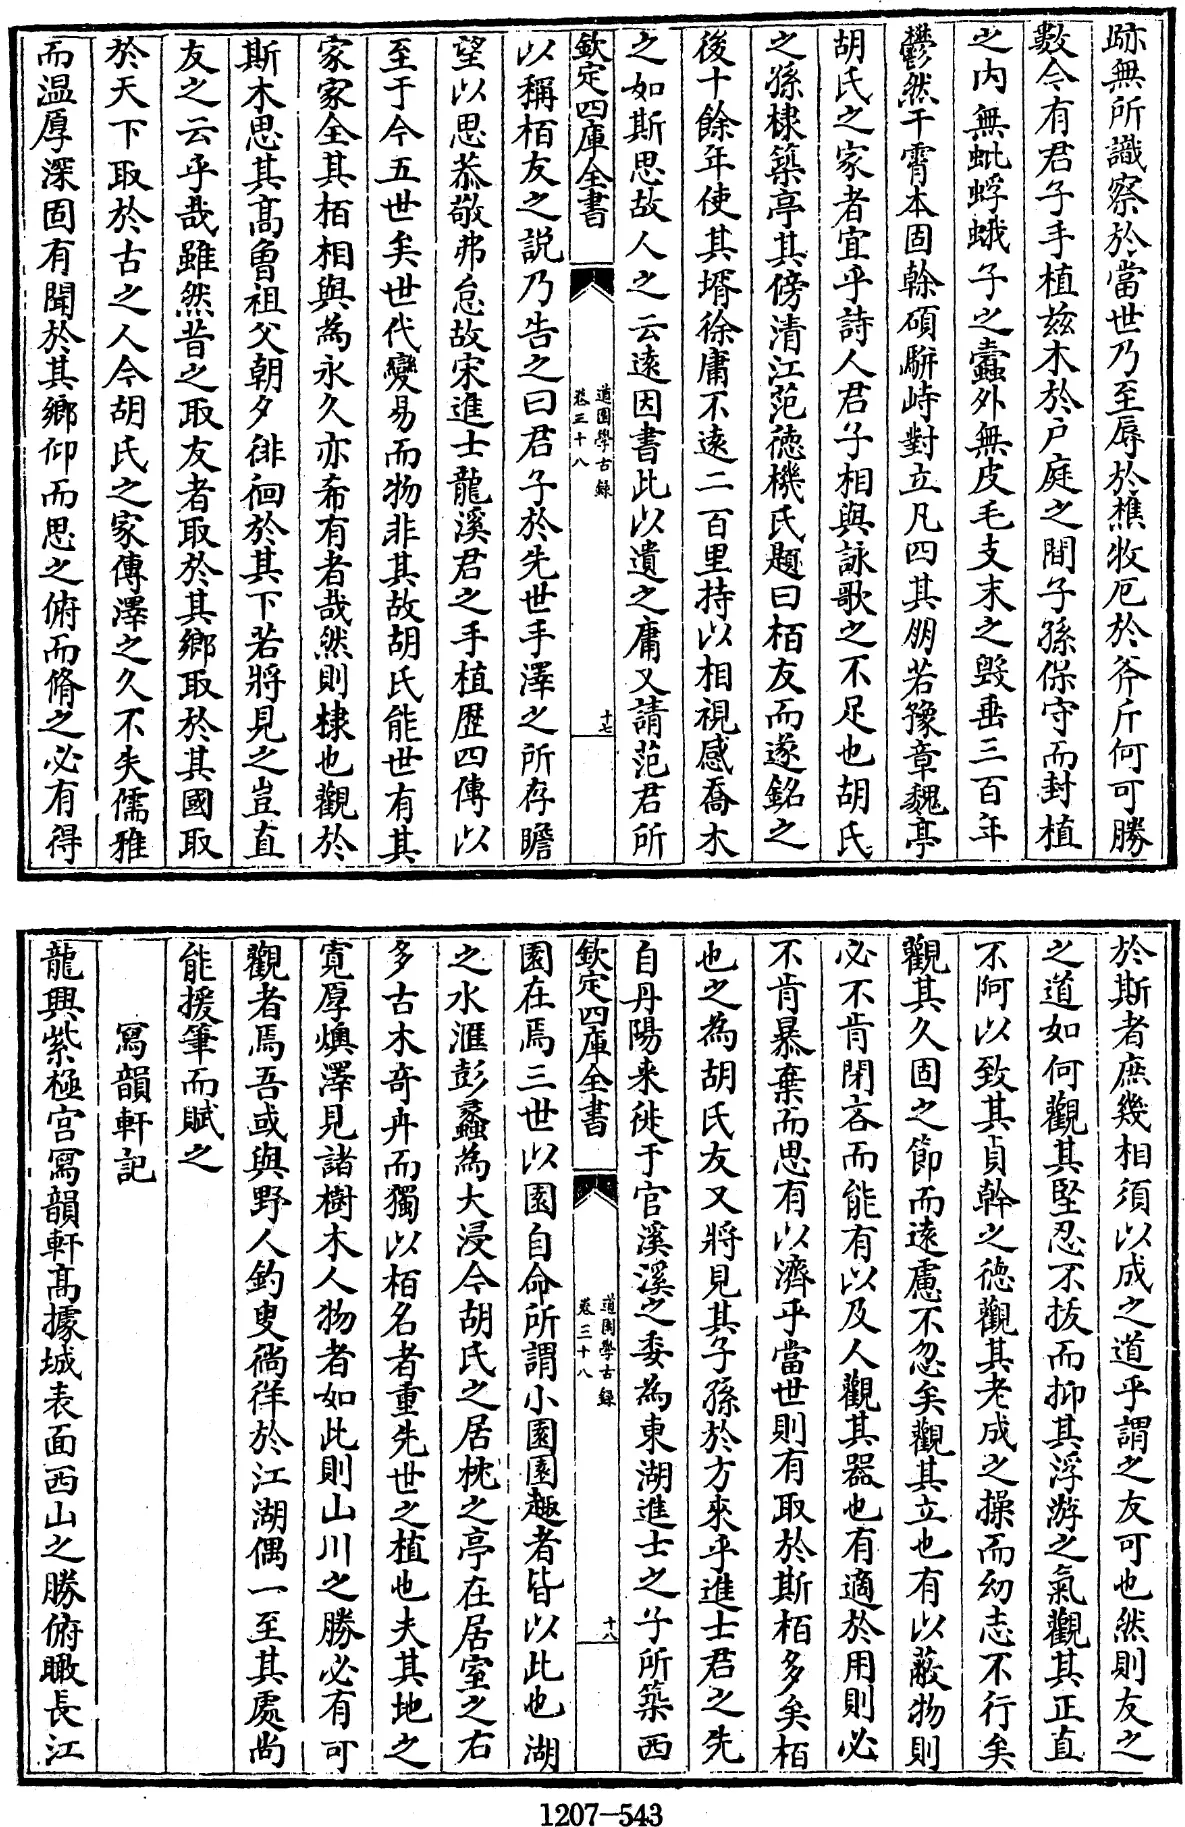 跡無所識察於當世乃至辱於樵牧厄於斧斤何可勝
數今有君子手植兹木於户庭之間子孫保守而封植
之内無蚍蜉蛾子之蠧外無皮毛支末之毁垂三百年
鬱然干霄本固榦碩駢峙對立凡四其朋若豫章魏亭
胡氏之家者宜乎詩人君子相與詠歌之不足也胡氏
之孫棣築亭其傍清江范徳機氏題曰栢友而遂銘之
後十餘年使其壻徐庸不逺二百里持以相視感喬木
之如斯思故人之云逺因書此以遺之庸又請范君所
欽定四庫全書
道園學古録
卷三十八
十七
以稱栢友之説乃告之曰君子於先世手澤之所存瞻
望以思恭敬弗怠故宋進士龍溪君之手植歴四傳以
至于今五世矣世代變易而物非其故胡氏能世有其
家家全其栢相與為永久亦希有者哉然則棣也觀於
斯木思其髙曾祖父朝夕徘徊於其下若將見之豈直
友之云乎哉雖然昔之取友者取於其鄉取於其國取
於天下取於古之人今胡氏之家傳澤之久不失儒雅
而温厚深固有聞於其鄉仰而思之俯而脩之必有得
於斯者庶幾相須以成之道乎謂之友可也然則友之
之道如何觀其堅忍不拔而抑其浮游之氣觀其正直
不阿以致其貞幹之徳觀其老成之操而幼志不行矣
觀其久固之節而逺慮不忽矣觀其立也有以蔽物則
必不肯閉吝而能有以及人觀其器也有適於用則必
不肯暴棄而思有以濟乎當世則有取於斯栢多矣栢
也之為胡氏友又將見其子孫於方來乎進士君之先
自丹陽來徙于官溪溪之委為東湖進士之子所築西
欽定四庫全書
道園學古録
卷三十八
十八
園在焉三世以園自命所謂小園園趣者皆以此也湖
之水滙彭蠡為大浸今胡氏之居枕之亭在居室之右
多古木竒卉而獨以栢名者重先世之植也夫其地之
寛厚燠澤見諸樹木人物者如此則山川之勝必有可
觀者焉吾或與野人釣叟徜徉於江湖偶一至其處尚
能援筆而賦之
寫韻軒記
龍興紫極宫寫韻軒髙據城表面西山之勝俯瞰長江
1207-543